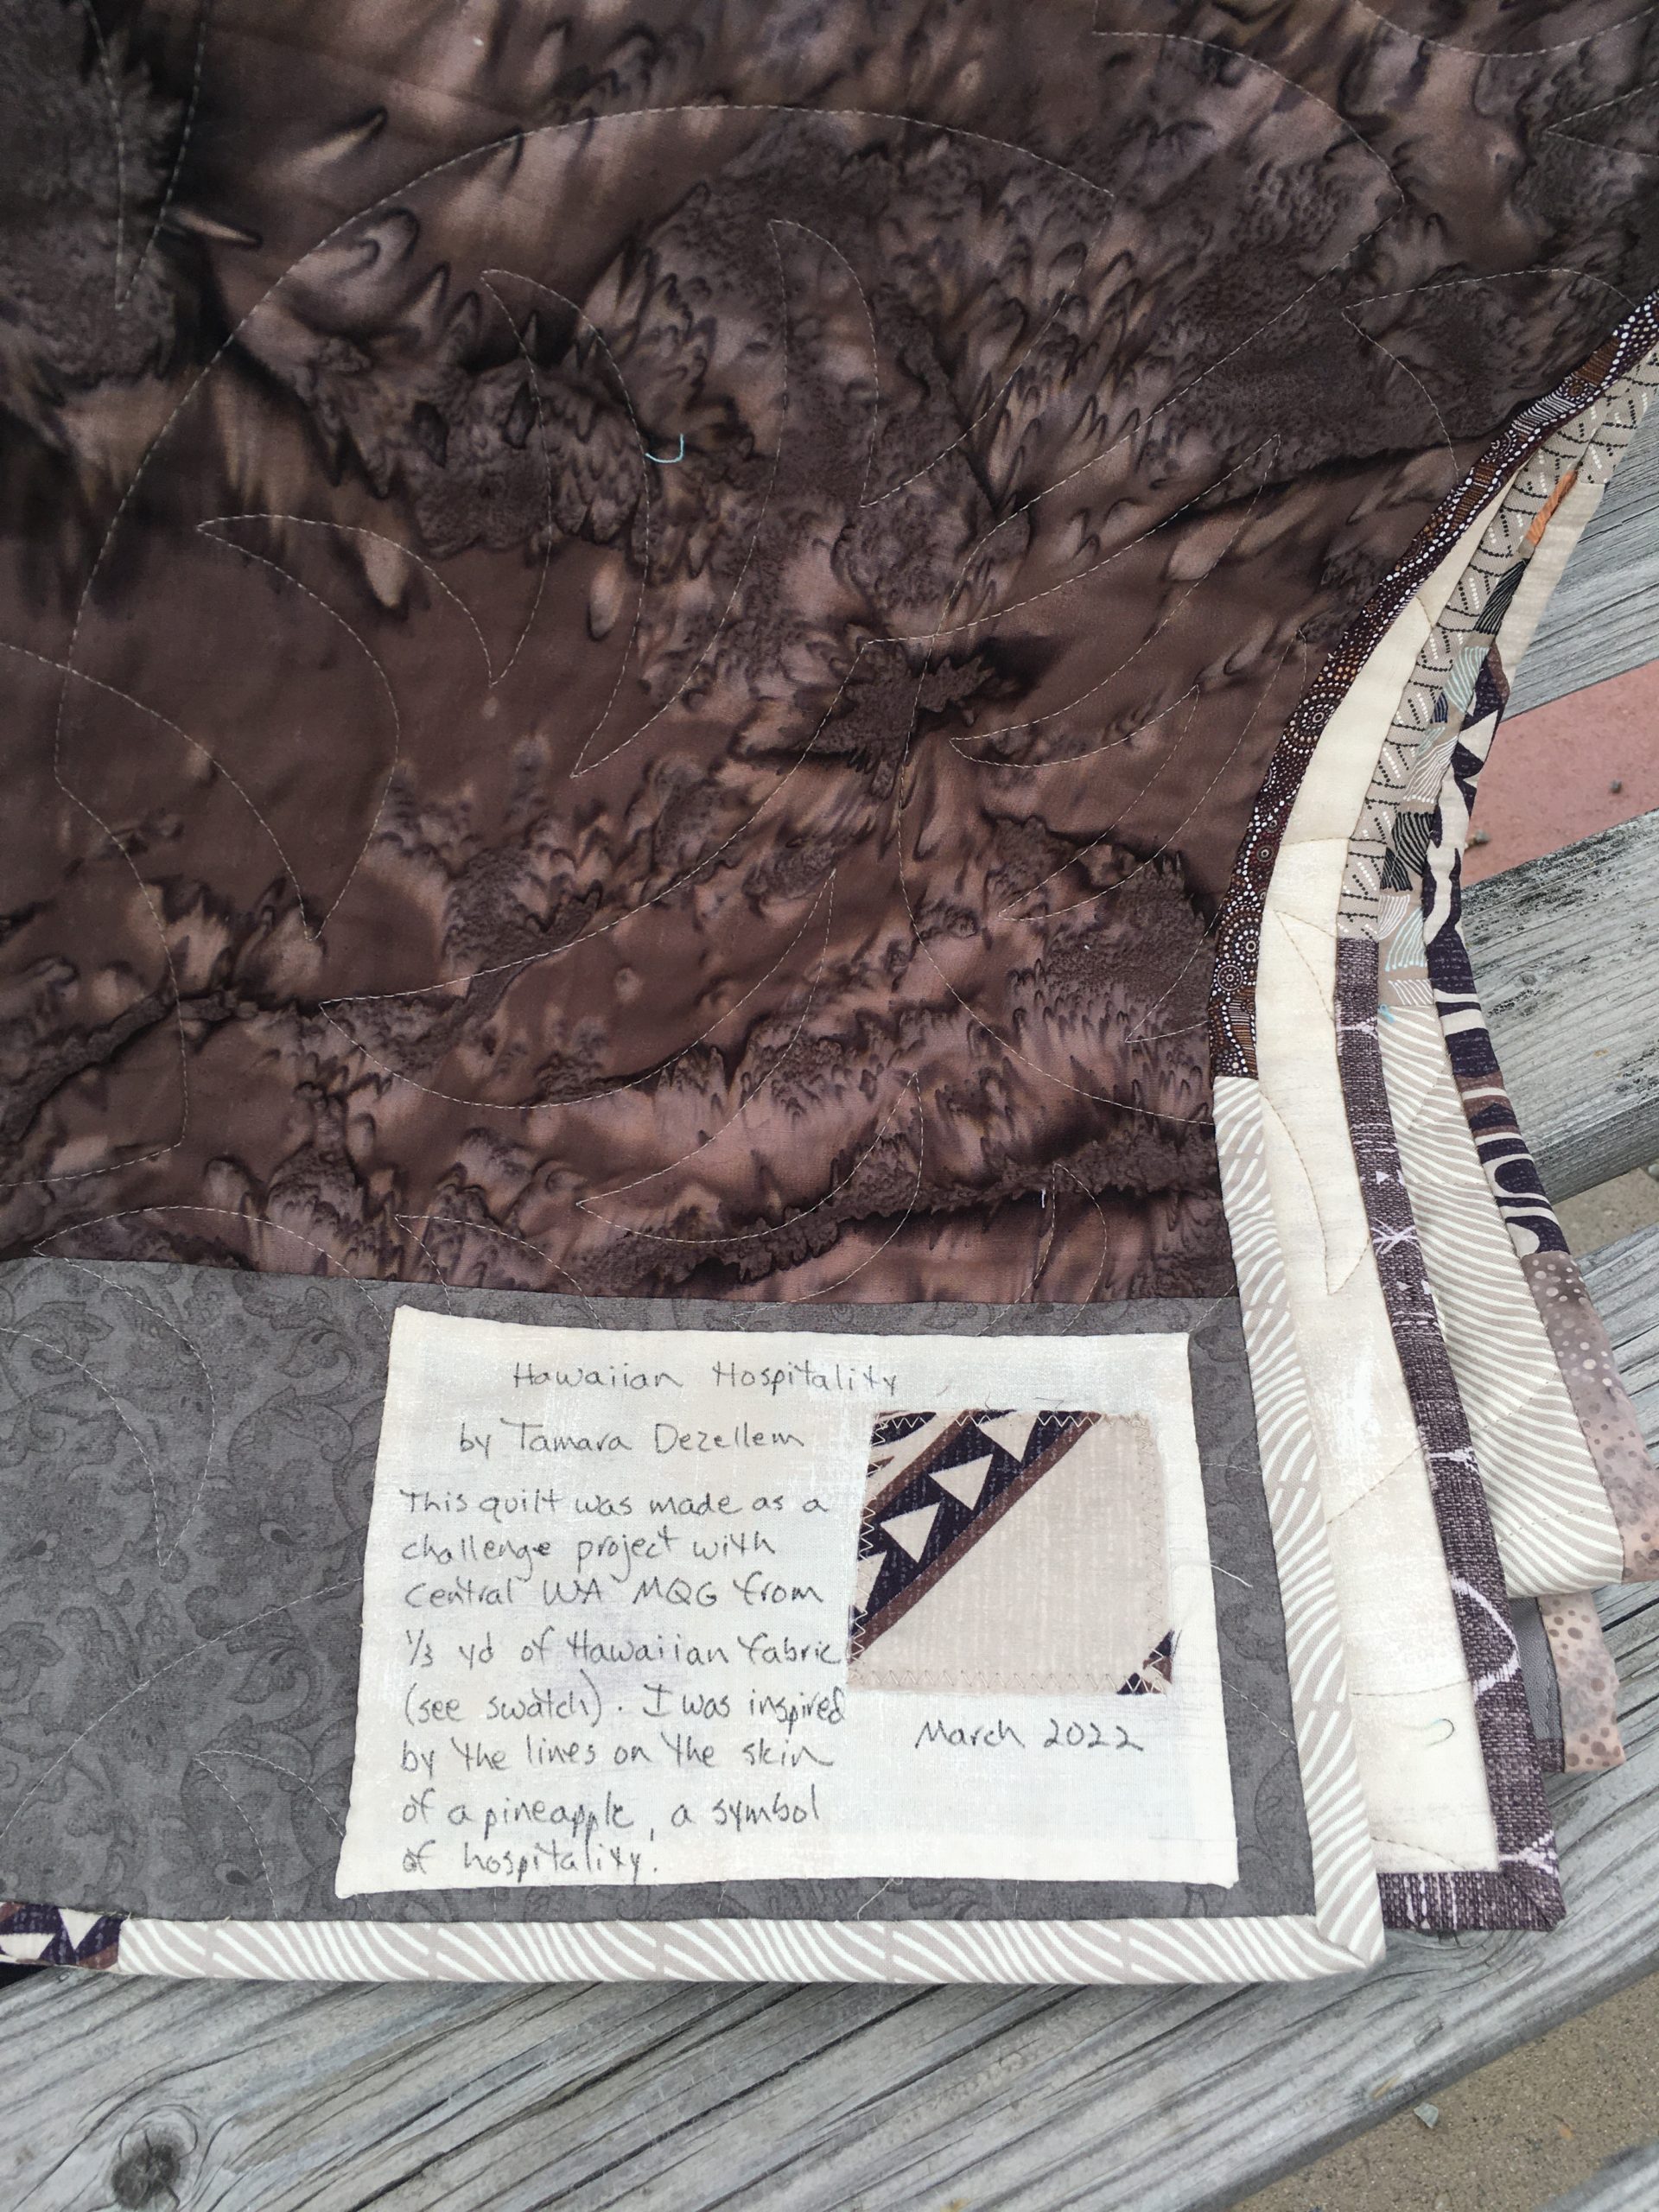 Hawaiian Hospitality
by Tamara Dezellem
This quilt was made as a
challenge project with
Central WA MQG from
1/3 yd of Hawaiian fabric
(see swatch). I was inspired
by the lines on the skin
of a pineapple, a symbol
of hospitality.
March 2022